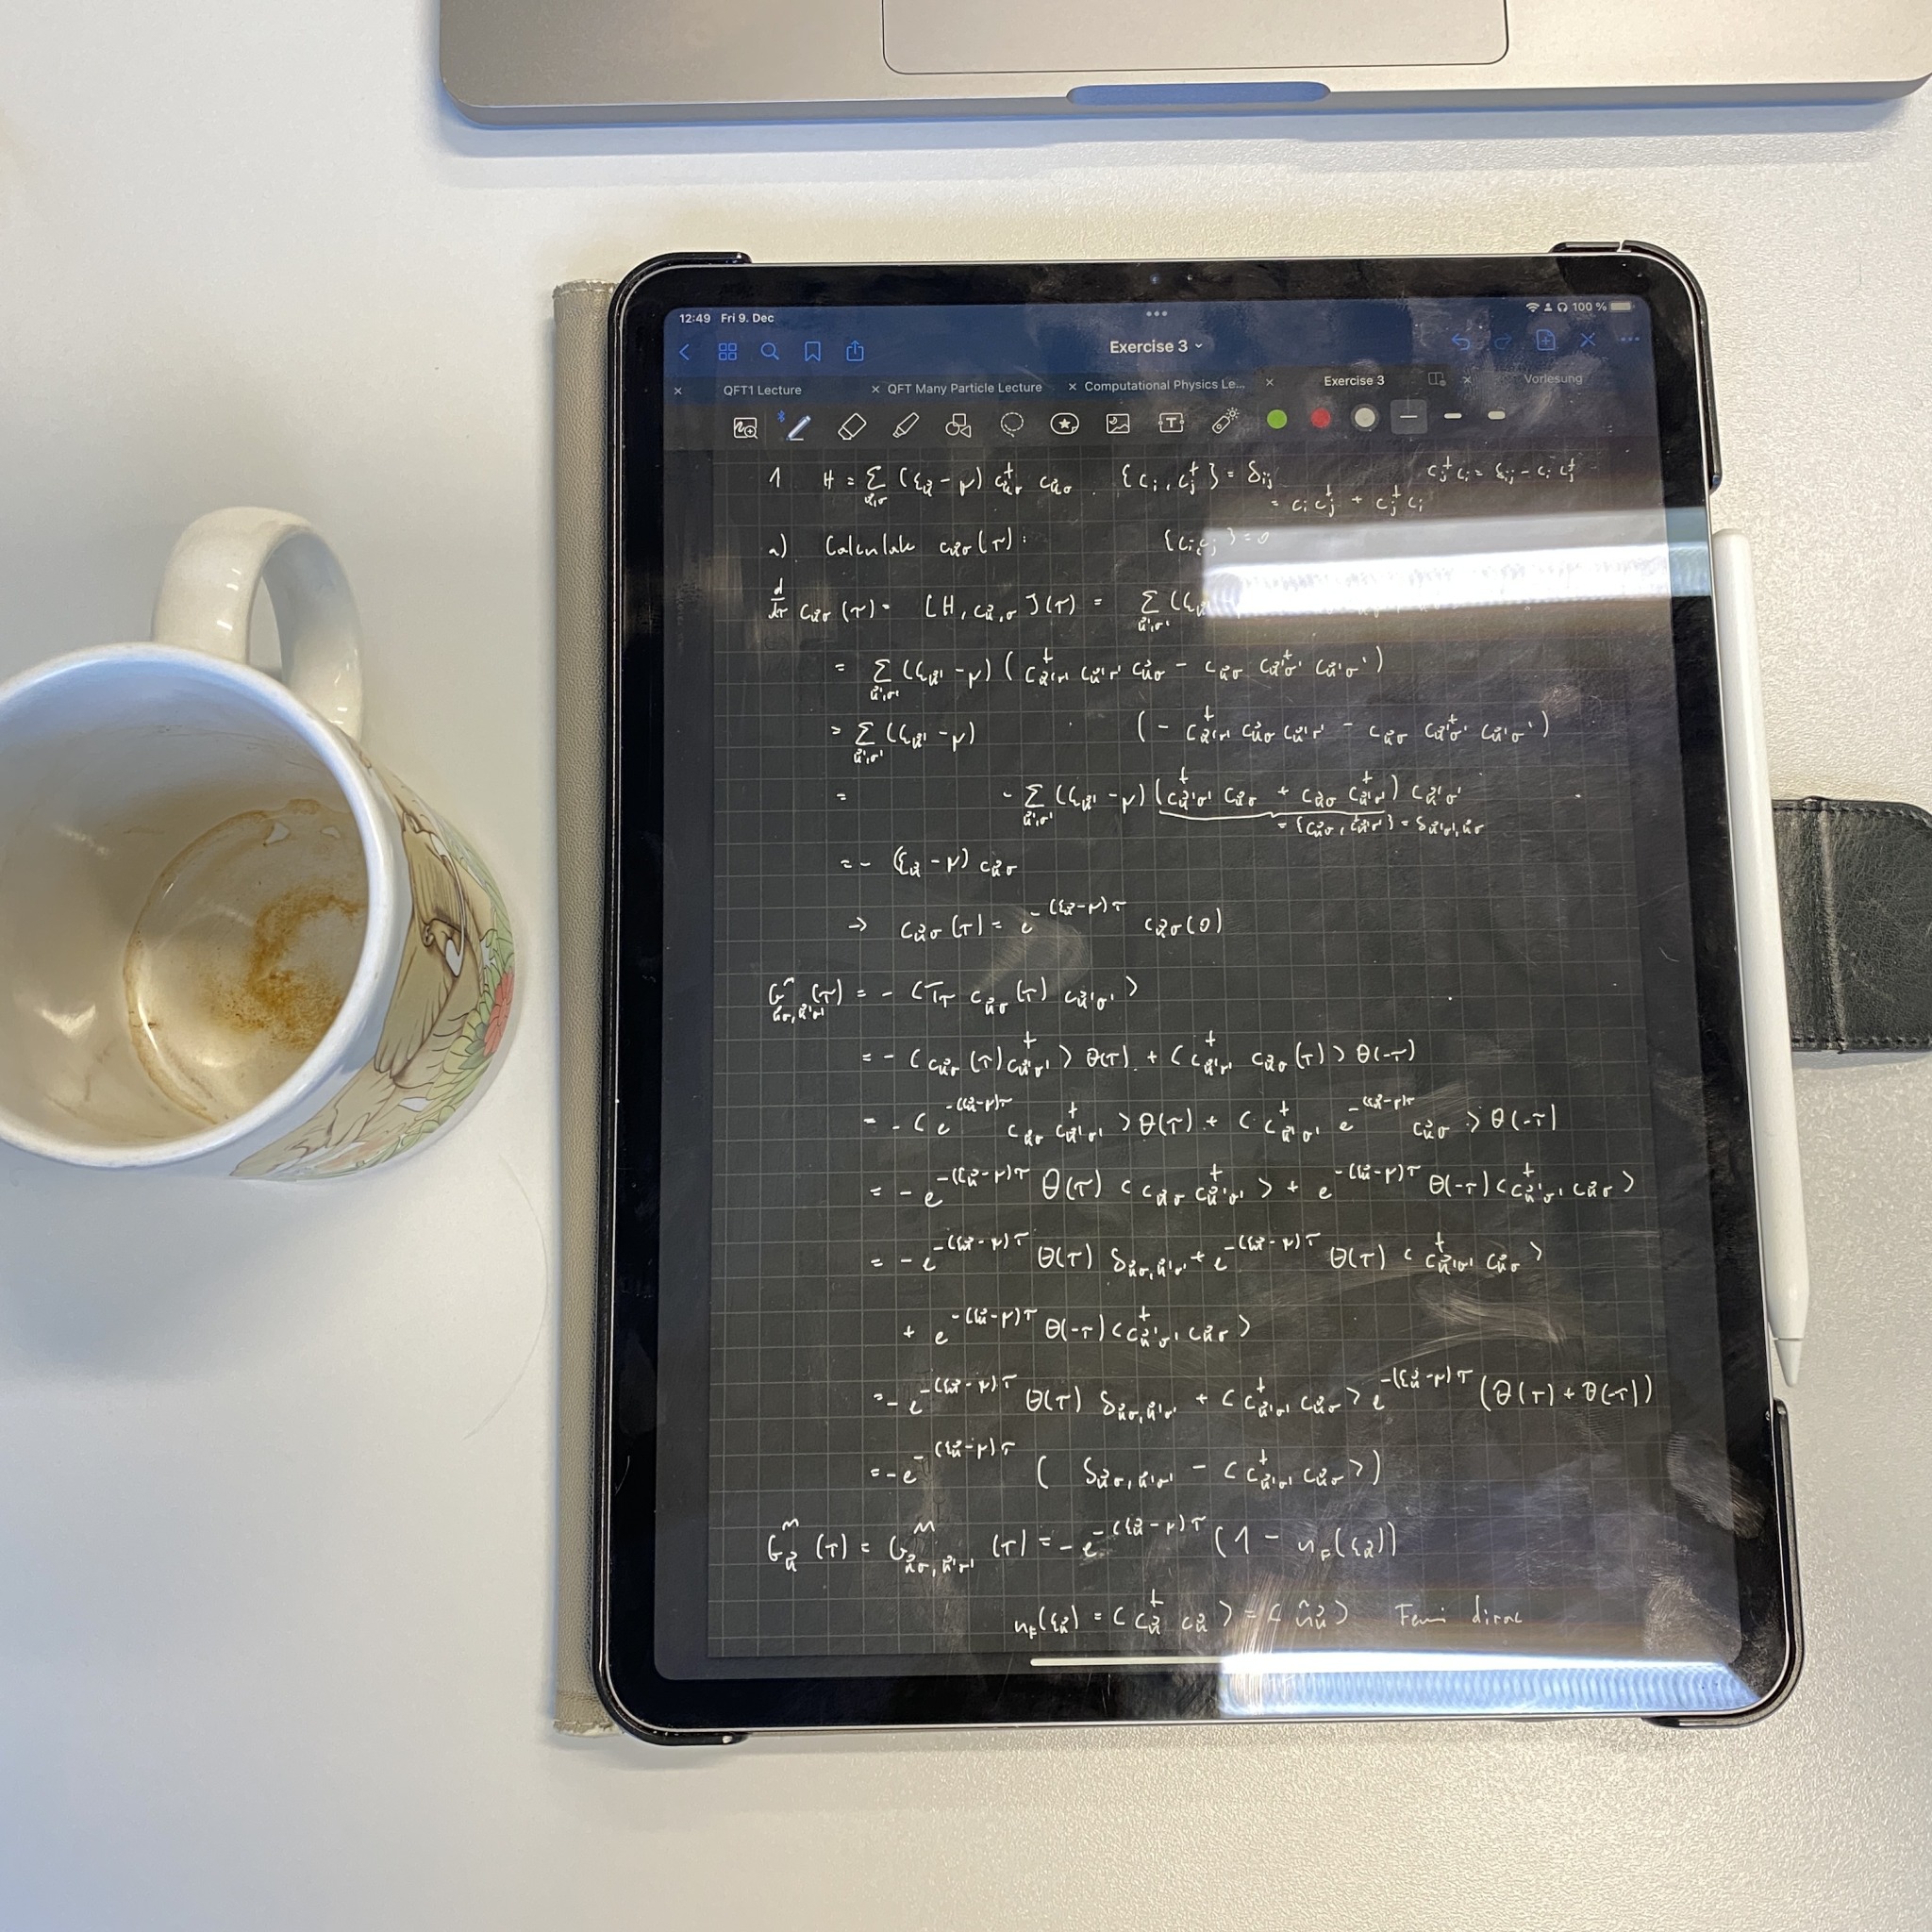 12:49 Fri 9. Dec 100 %
Exercise 3
QFT1 Lecture QFT Many Particle Lecture Computational Physics Le... Exercise 3 Vorlesung
1 H = Σ_{k⃗,σ} (ξ_k⃗ - μ) c†_{k⃗σ} c_{k⃗σ} {c_i, c_j†} = δ_ij c_j† c_i = δ_ij - c_i c_j†
= c_i c_j† + c_j† c_i
a) Calculate c_{k⃗σ}(τ): {c_i c_j} = 0
d/dτ c_{k⃗σ}(τ) = [H, c_{k⃗,σ}](τ) = Σ_{k⃗',σ'} (ξ_k⃗'
= Σ_{k⃗',σ'} (ξ_k⃗' - μ) (c†_{k⃗'σ'} c_{k⃗'σ'} c_{k⃗σ} - c_{k⃗σ} c†_{k⃗'σ'} c_{k⃗'σ'})
= Σ_{k⃗',σ'} (ξ_k⃗' - μ) (- c†_{k⃗'σ'} c_{k⃗σ} c_{k⃗'σ'} - c_{k⃗σ} c†_{k⃗'σ'} c_{k⃗'σ'})
= - Σ_{k⃗',σ'} (ξ_k⃗' - μ) (c†_{k⃗'σ'} c_{k⃗σ} + c_{k⃗σ} c†_{k⃗'σ'}) c_{k⃗'σ'}
= {c_{k⃗σ}, c†_{k⃗'σ'}} = δ_{k⃗'σ',k⃗σ}
= - (ξ_k⃗ - μ) c_{k⃗σ}
→ c_{k⃗σ}(τ) = e^{-(ξ_k⃗-μ)τ} c_{k⃗σ}(0)
G^M_{k⃗σ,k⃗'σ'}(τ) = - ⟨T_τ c_{k⃗σ}(τ) c_{k⃗'σ'}⟩
= - ⟨c_{k⃗σ}(τ) c†_{k⃗'σ'}⟩ θ(τ) + ⟨c†_{k⃗'σ'} c_{k⃗σ}(τ)⟩ θ(-τ)
= - ⟨e^{-(ξ_k⃗-μ)τ} c_{k⃗σ} c†_{k⃗'σ'}⟩ θ(τ) + ⟨c†_{k⃗'σ'} e^{-(ξ_k⃗-μ)τ} c_{k⃗σ}⟩ θ(-τ)
= - e^{-(ξ_k⃗-μ)τ} θ(τ) ⟨c_{k⃗σ} c†_{k⃗'σ'}⟩ + e^{-(ξ_k⃗-μ)τ} θ(-τ) ⟨c†_{k⃗'σ'} c_{k⃗σ}⟩
= - e^{-(ξ_k⃗-μ)τ} θ(τ) δ_{k⃗σ,k⃗'σ'} + e^{-(ξ_k⃗-μ)τ} θ(τ) ⟨c†_{k⃗'σ'} c_{k⃗σ}⟩
+ e^{-(ξ_k⃗-μ)τ} θ(-τ) ⟨c†_{k⃗'σ'} c_{k⃗σ}⟩
= - e^{-(ξ_k⃗-μ)τ} θ(τ) δ_{k⃗σ,k⃗'σ'} + ⟨c†_{k⃗'σ'} c_{k⃗σ}⟩ e^{-(ξ_k⃗-μ)τ} (θ(τ) + θ(-τ))
= - e^{-(ξ_k⃗-μ)τ} (δ_{k⃗σ,k⃗'σ'} - ⟨c†_{k⃗'σ'} c_{k⃗σ}⟩)
G^M_k⃗(τ) = G^M_{k⃗σ,k⃗'σ'}(τ) = - e^{-(ξ_k⃗-μ)τ} (1 - n_F(ξ_k⃗))
n_F(ξ_k⃗) = ⟨c†_k⃗ c_k⃗⟩ = ⟨n̂_k⃗⟩ Fermi dirac